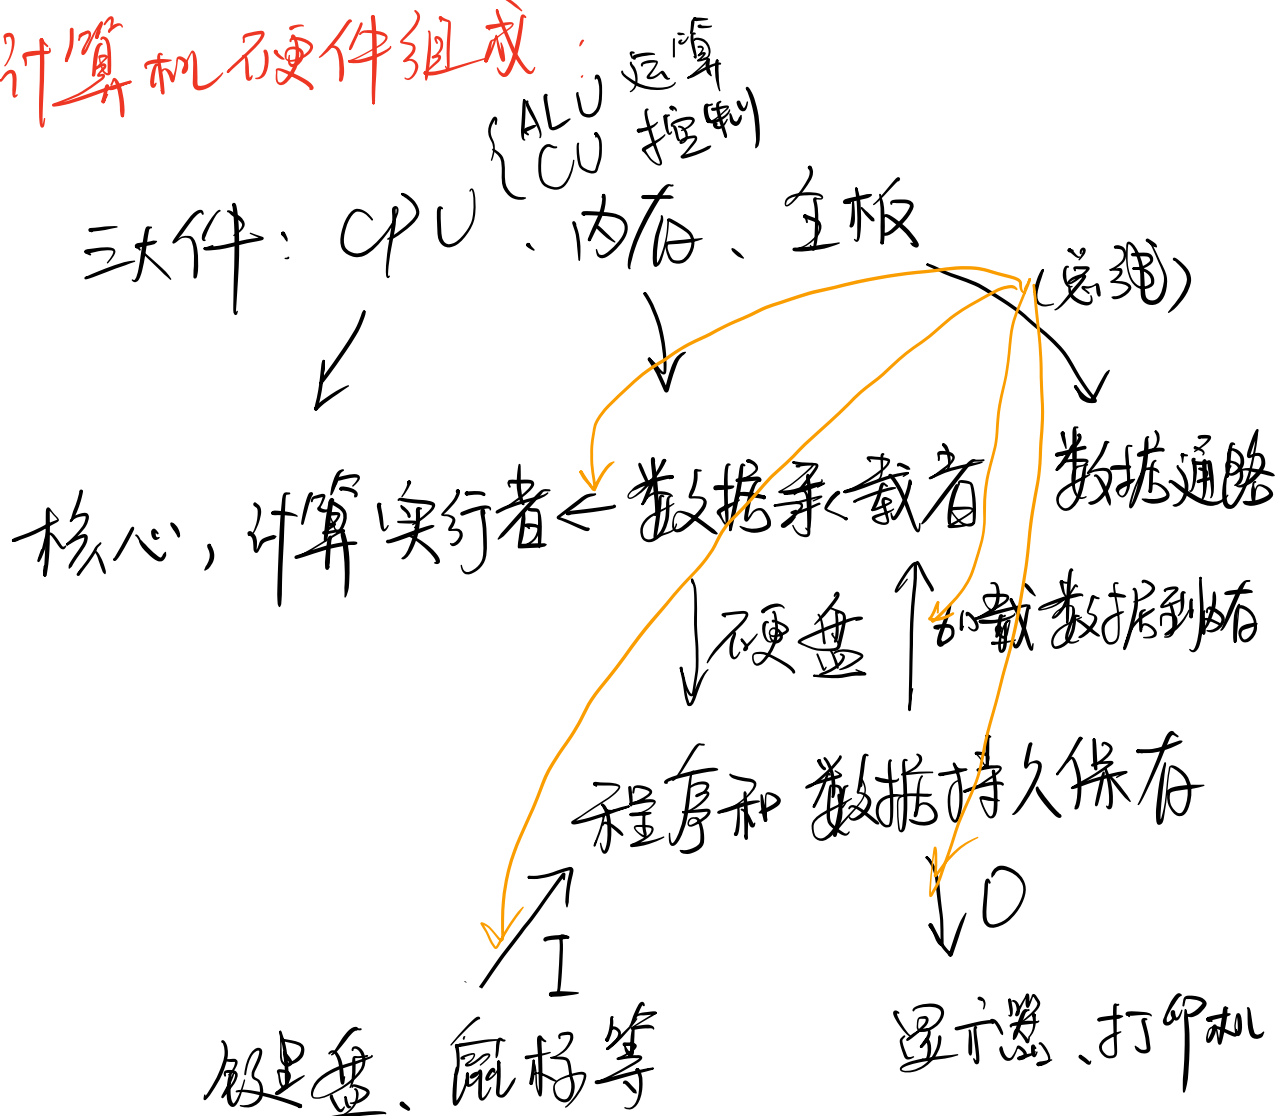 计算机硬件组成:
ALU 运算
CU 控制
三大件: CPU、内存、主板
(总线)
核心,计算实行者 数据承载者 数据通路
硬盘 加载数据到内存
程序和数据持久保存
I O
键盘、鼠标等 显示器、打印机